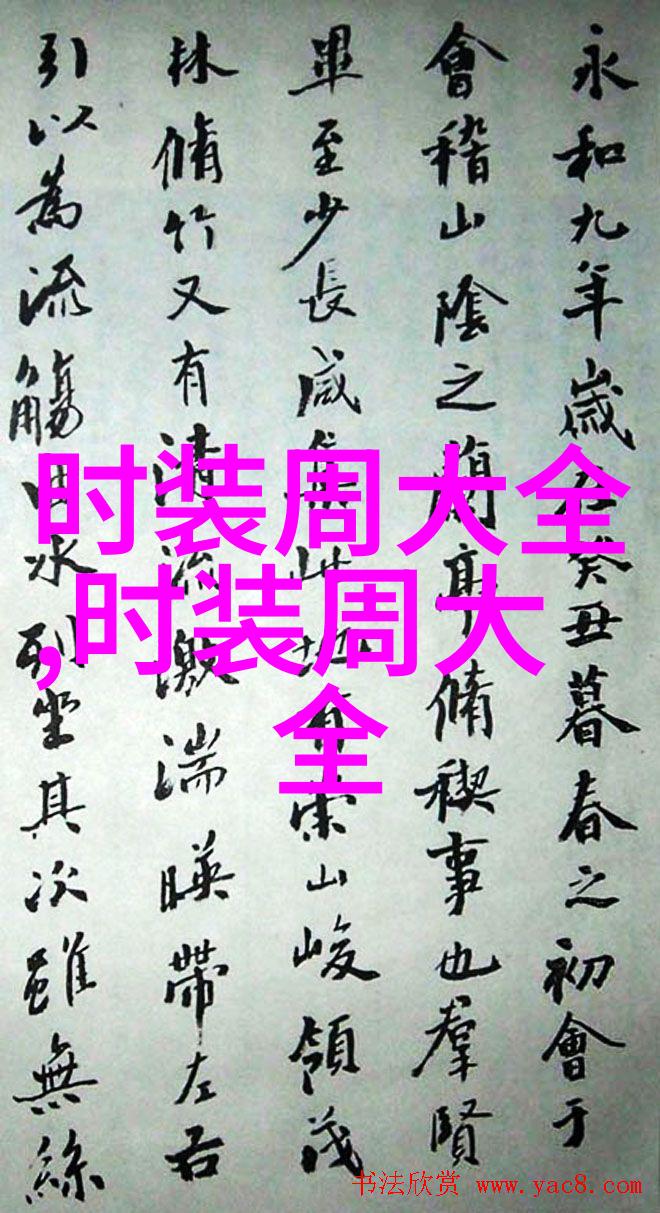 永和九年歲在癸丑暮春之初會于
會稽山陰之蘭亭脩稧事也羣賢
畢至少長咸集此地有崇山峻領茂
林脩竹又有清流激湍暎帶左右
引以為流觴曲水列坐其次雖無絲
时装周大全
,时装周大
全
书法欣赏 www.yac8.com